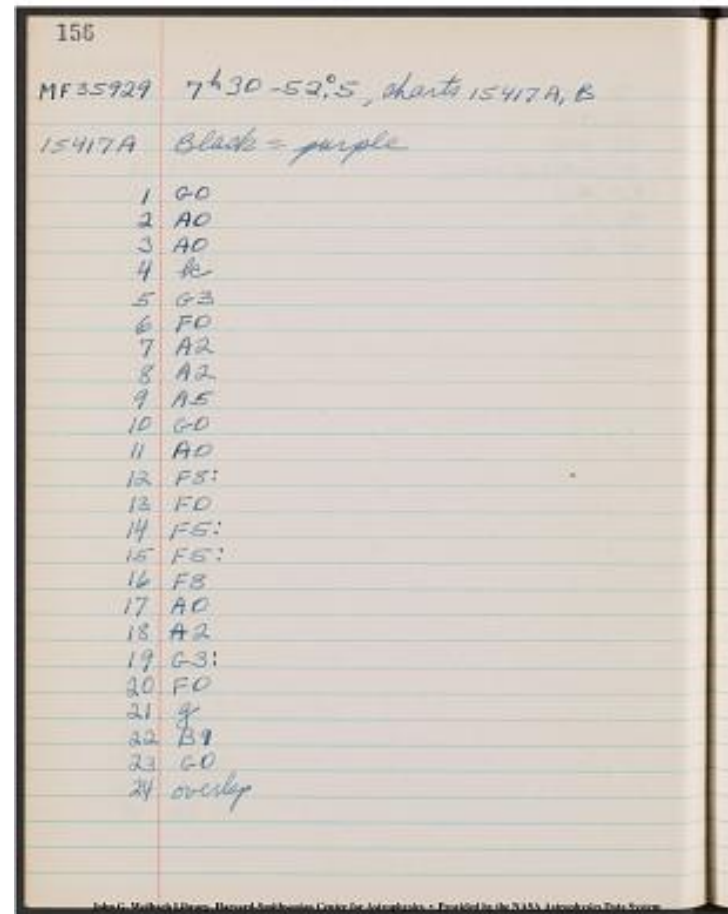 156
MF35929 7h30 -52°.5, charts 15417A, B
15417A Black = purple
1 G0
2 A0
3 A0
4 k
5 G3
6 F0
7 A2
8 A2
9 A5
10 G0
11 A0
12 F8:
13 F0
14 F5:
15 F5:
16 F8
17 A0
18 A2
19 G3:
20 F0
21 g
22 B9
23 G0
24 overlap
John G. Wolbach Library, Harvard-Smithsonian Center for Astrophysics • Provided by the NASA Astrophysics Data System